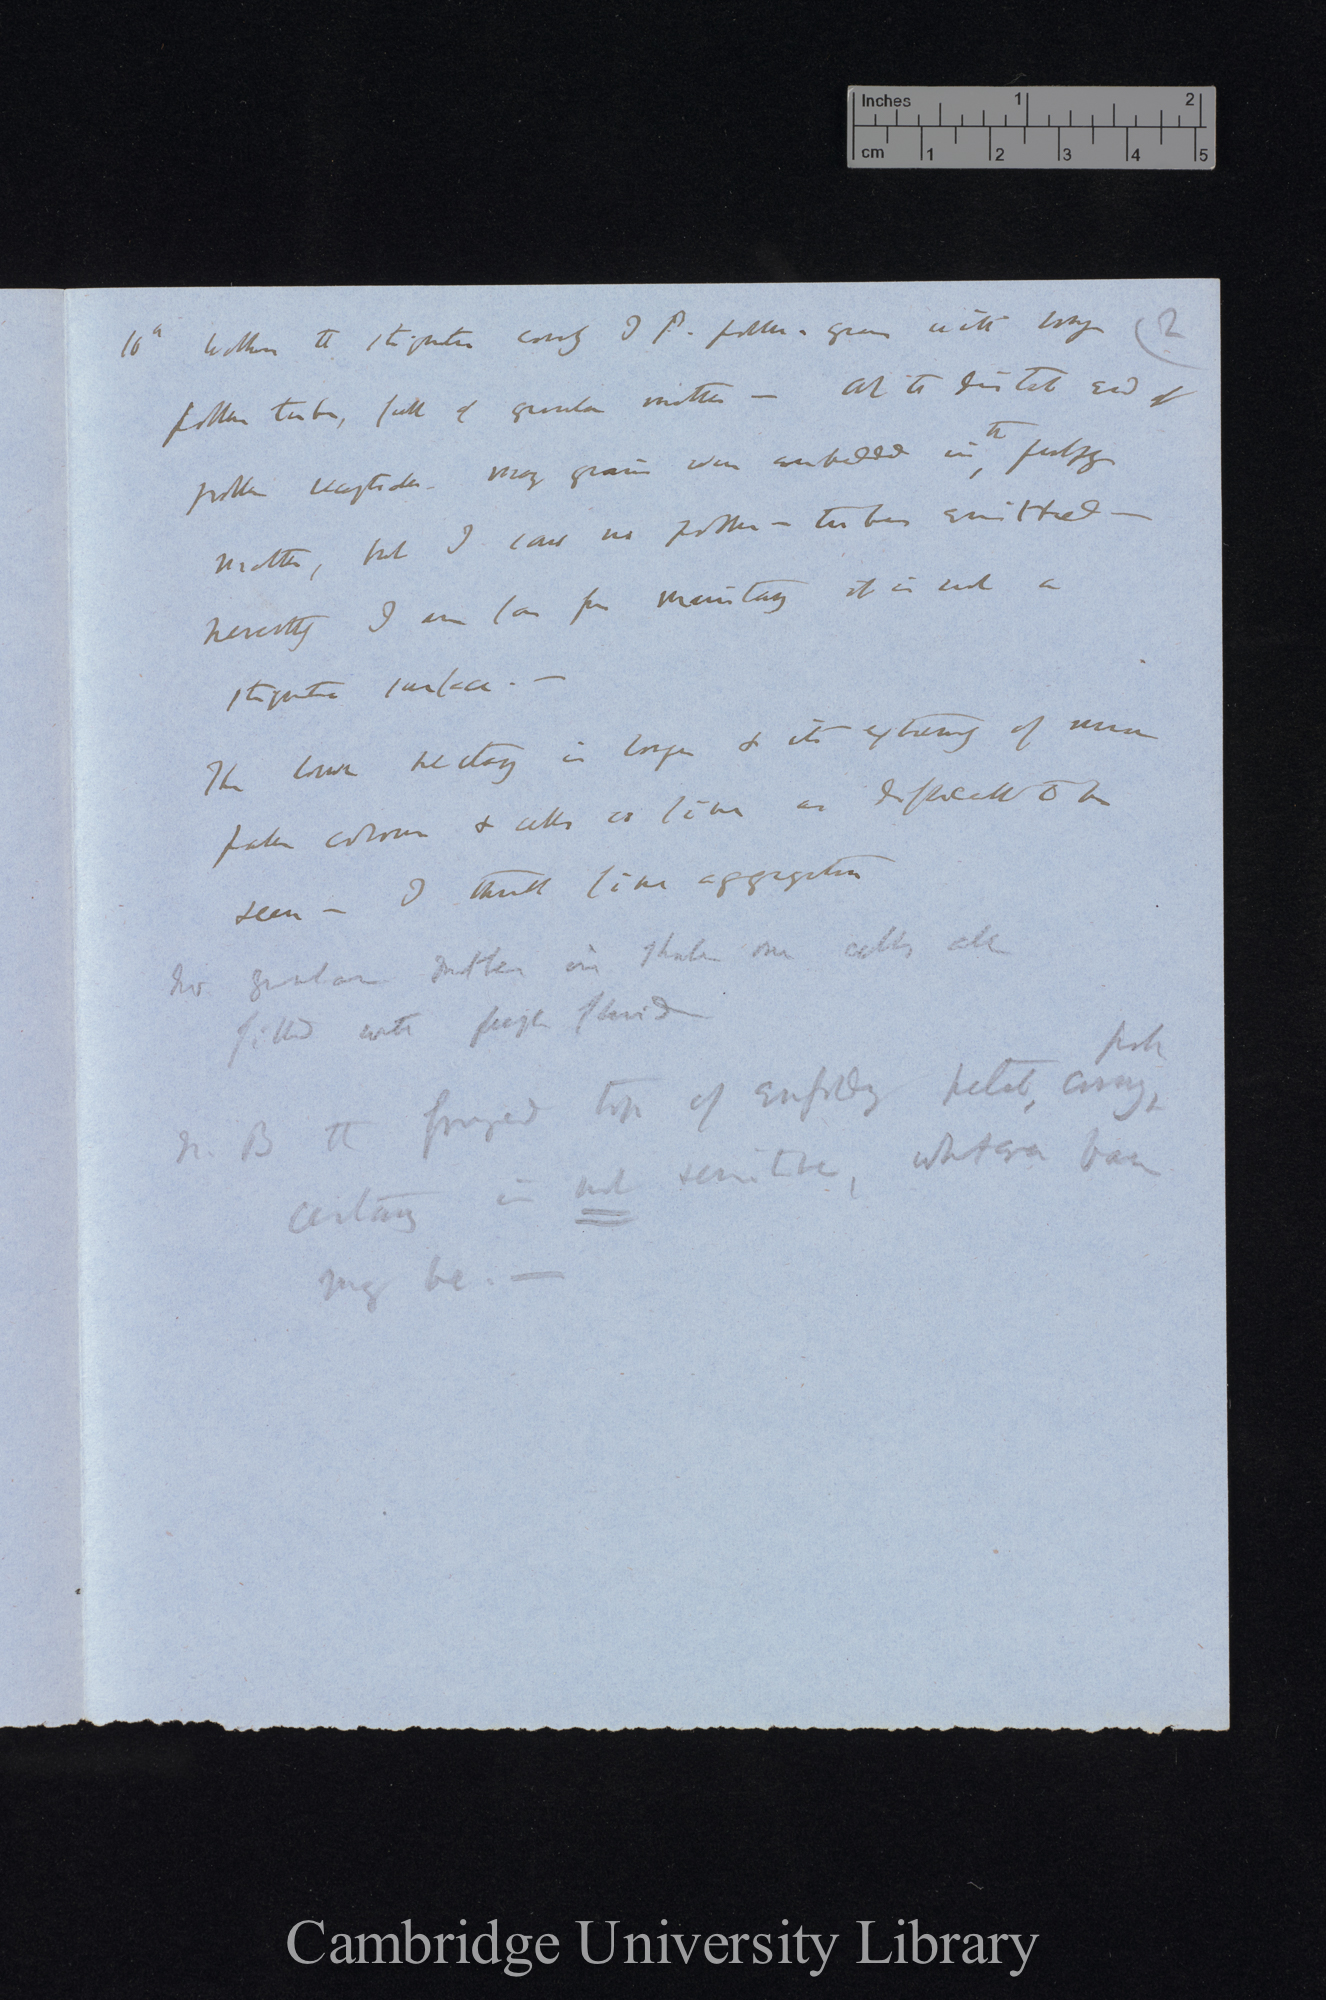 Inches 1 2
cm 1 2 3 4 5
(2
10ᵃ Within the stigmatic cavity I P. pollen-grains with long
pollen tubes, full of granular matter — At the distal end of
pollen receptacle many grains were embedded in the pulpy
matter, but I saw no pollen-tubes emitted —
I am far from maintaining it is not a
stigmatic surface. —
The lower nectary is longer & its extremity of more
paler colour & cells so fine as difficult to be
seen — I think fine aggregation
No granular matter in cells all
filled with fluid
pink
N. B the fringed tip of enfolding petal, cavity,
certainly is not sensitive, whatever base
may be. —
Cambridge University Library